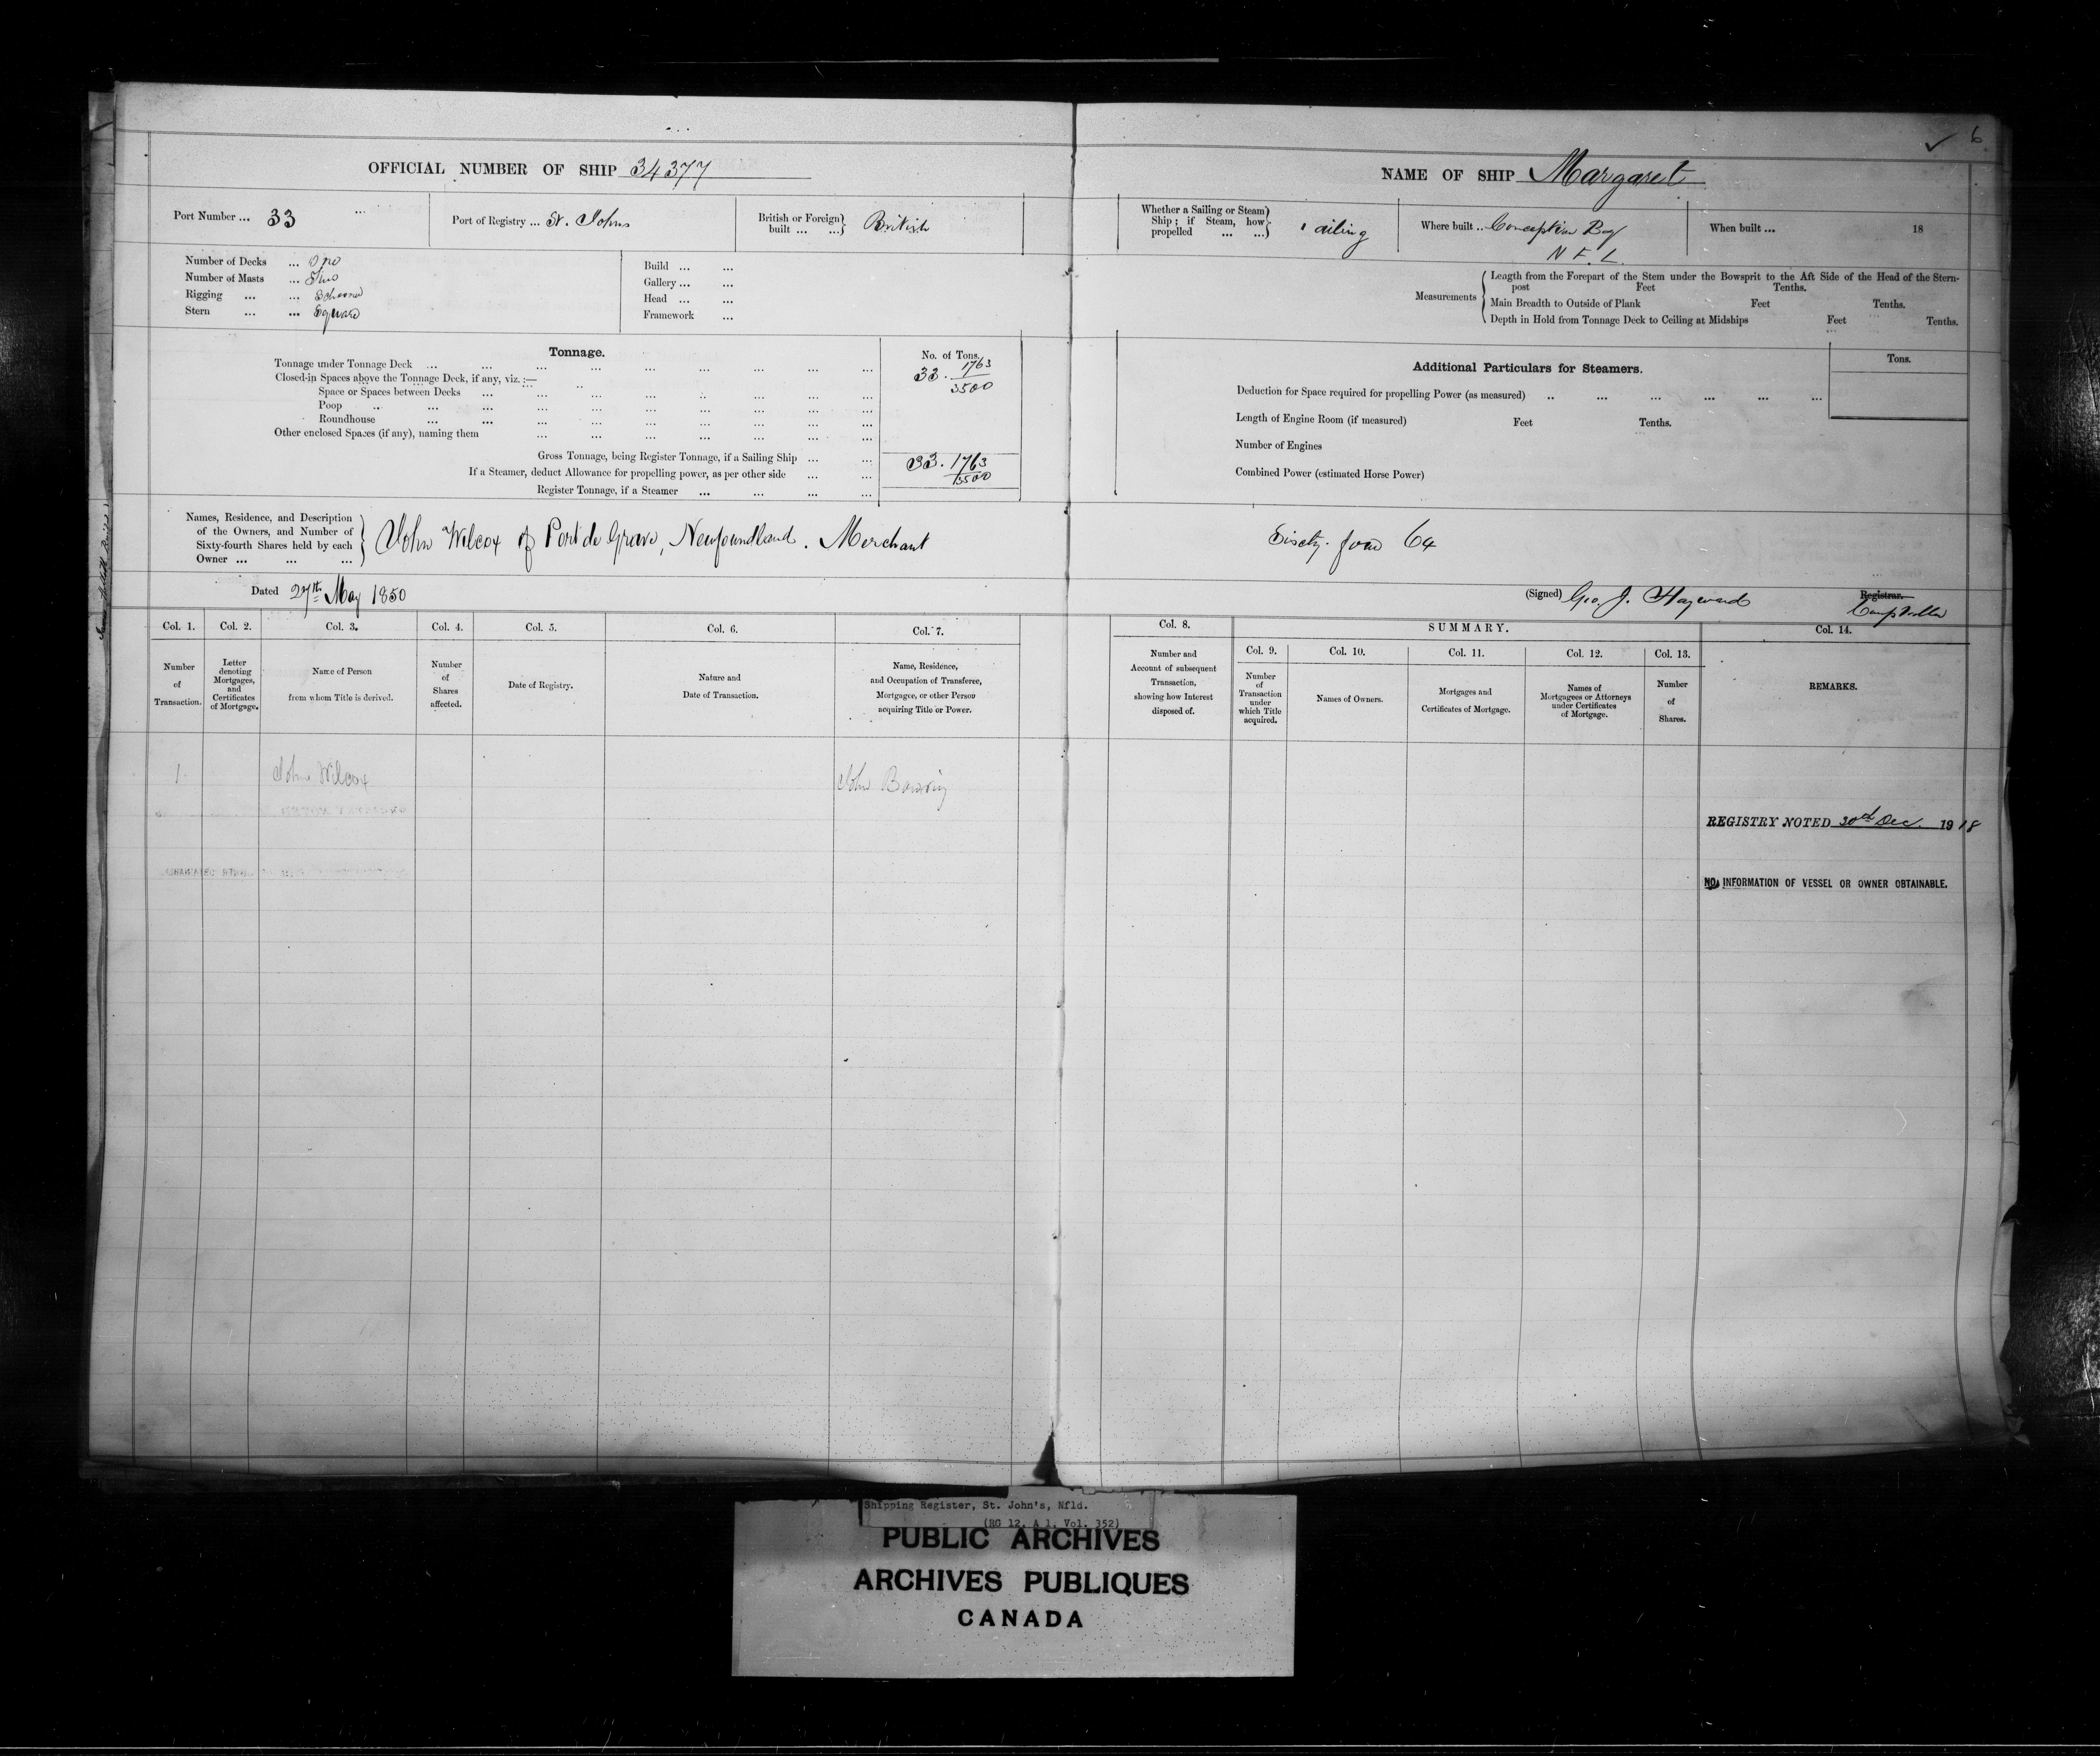 6
OFFICIAL NUMBER OF SHIP 34377
NAME OF SHIP Margaret
Port Number ... 33
Port of Registry ... St. Johns
British or Foreign built ... ...} British
Whether a Sailing or Steam Ship; if Steam, how propelled ... ...} ailing
Where built .. Conception Bay N F. L.
When built ... 18
Number of Decks ...
Number of Masts ... Two
Rigging ... ... Schooner
Stern ... ... Square
Build ... ...
Gallery ... ...
Head ... ...
Framework ...
Measurements
Length from the Forepart of the Stem under the Bowsprit to the Aft Side of the Head of the Stern-
post Feet Tenths.
Main Breadth to Outside of Plank Feet Tenths.
Depth in Hold from Tonnage Deck to Ceiling at Midships Feet Tenths.
Tonnage.
No. of Tons.
Tonnage under Tonnage Deck ... 33. 1763/3500
Closed-in Spaces above the Tonnage Deck, if any, viz. :—
Space or Spaces between Decks
Poop
Roundhouse
Other enclosed Spaces (if any), naming them
Gross Tonnage, being Register Tonnage, if a Sailing Ship ... 33. 1763/3500
If a Steamer, deduct Allowance for propelling power, as per other side
Register Tonnage, if a Steamer
Additional Particulars for Steamers.
Tons.
Deduction for Space required for propelling Power (as measured)
Length of Engine Room (if measured) Feet Tenths.
Number of Engines
Combined Power (estimated Horse Power)
Names, Residence, and Description
of the Owners, and Number of
Sixty-fourth Shares held by each
Owner ... ... ...
John Wilcox of Port de Grave, Newfoundland. Merchant Sixty-four 64
Dated 27th May 1850
(Signed) Geo. J. Hayward Registrar. Comptroller
Col. 1.
Number
of
Transaction.
Col. 2.
Letter
denoting
Mortgages,
and
Certificates
of Mortgage.
Col. 3.
Name of Person
from whom Title is derived.
Col. 4.
Number
of
Shares
affected.
Col. 5.
Date of Registry.
Col. 6.
Nature and
Date of Transaction.
Col. 7.
Name, Residence,
and Occupation of Transferee,
Mortgagee, or other Person
acquiring Title or Power.
Col. 8.
Number and
Account of subsequent
Transaction,
showing how Interest
disposed of.
SUMMARY.
Col. 9.
Number
of
Transaction
under
which Title
acquired.
Col. 10.
Names of Owners.
Col. 11.
Mortgages and
Certificates of Mortgage.
Col. 12.
Names of
Mortgagees or Attorneys
under Certificates
of Mortgage.
Col. 13.
Number
of
Shares.
Col. 14.
REMARKS.
1. John Wilcox John Bowring
REGISTRY NOTED 30th Dec. 1918
NO INFORMATION OF VESSEL OR OWNER OBTAINABLE.
Shipping Register, St. John's, Nfld.
(RG 12, A 1, Vol. 352)
PUBLIC ARCHIVES
ARCHIVES PUBLIQUES
CANADA